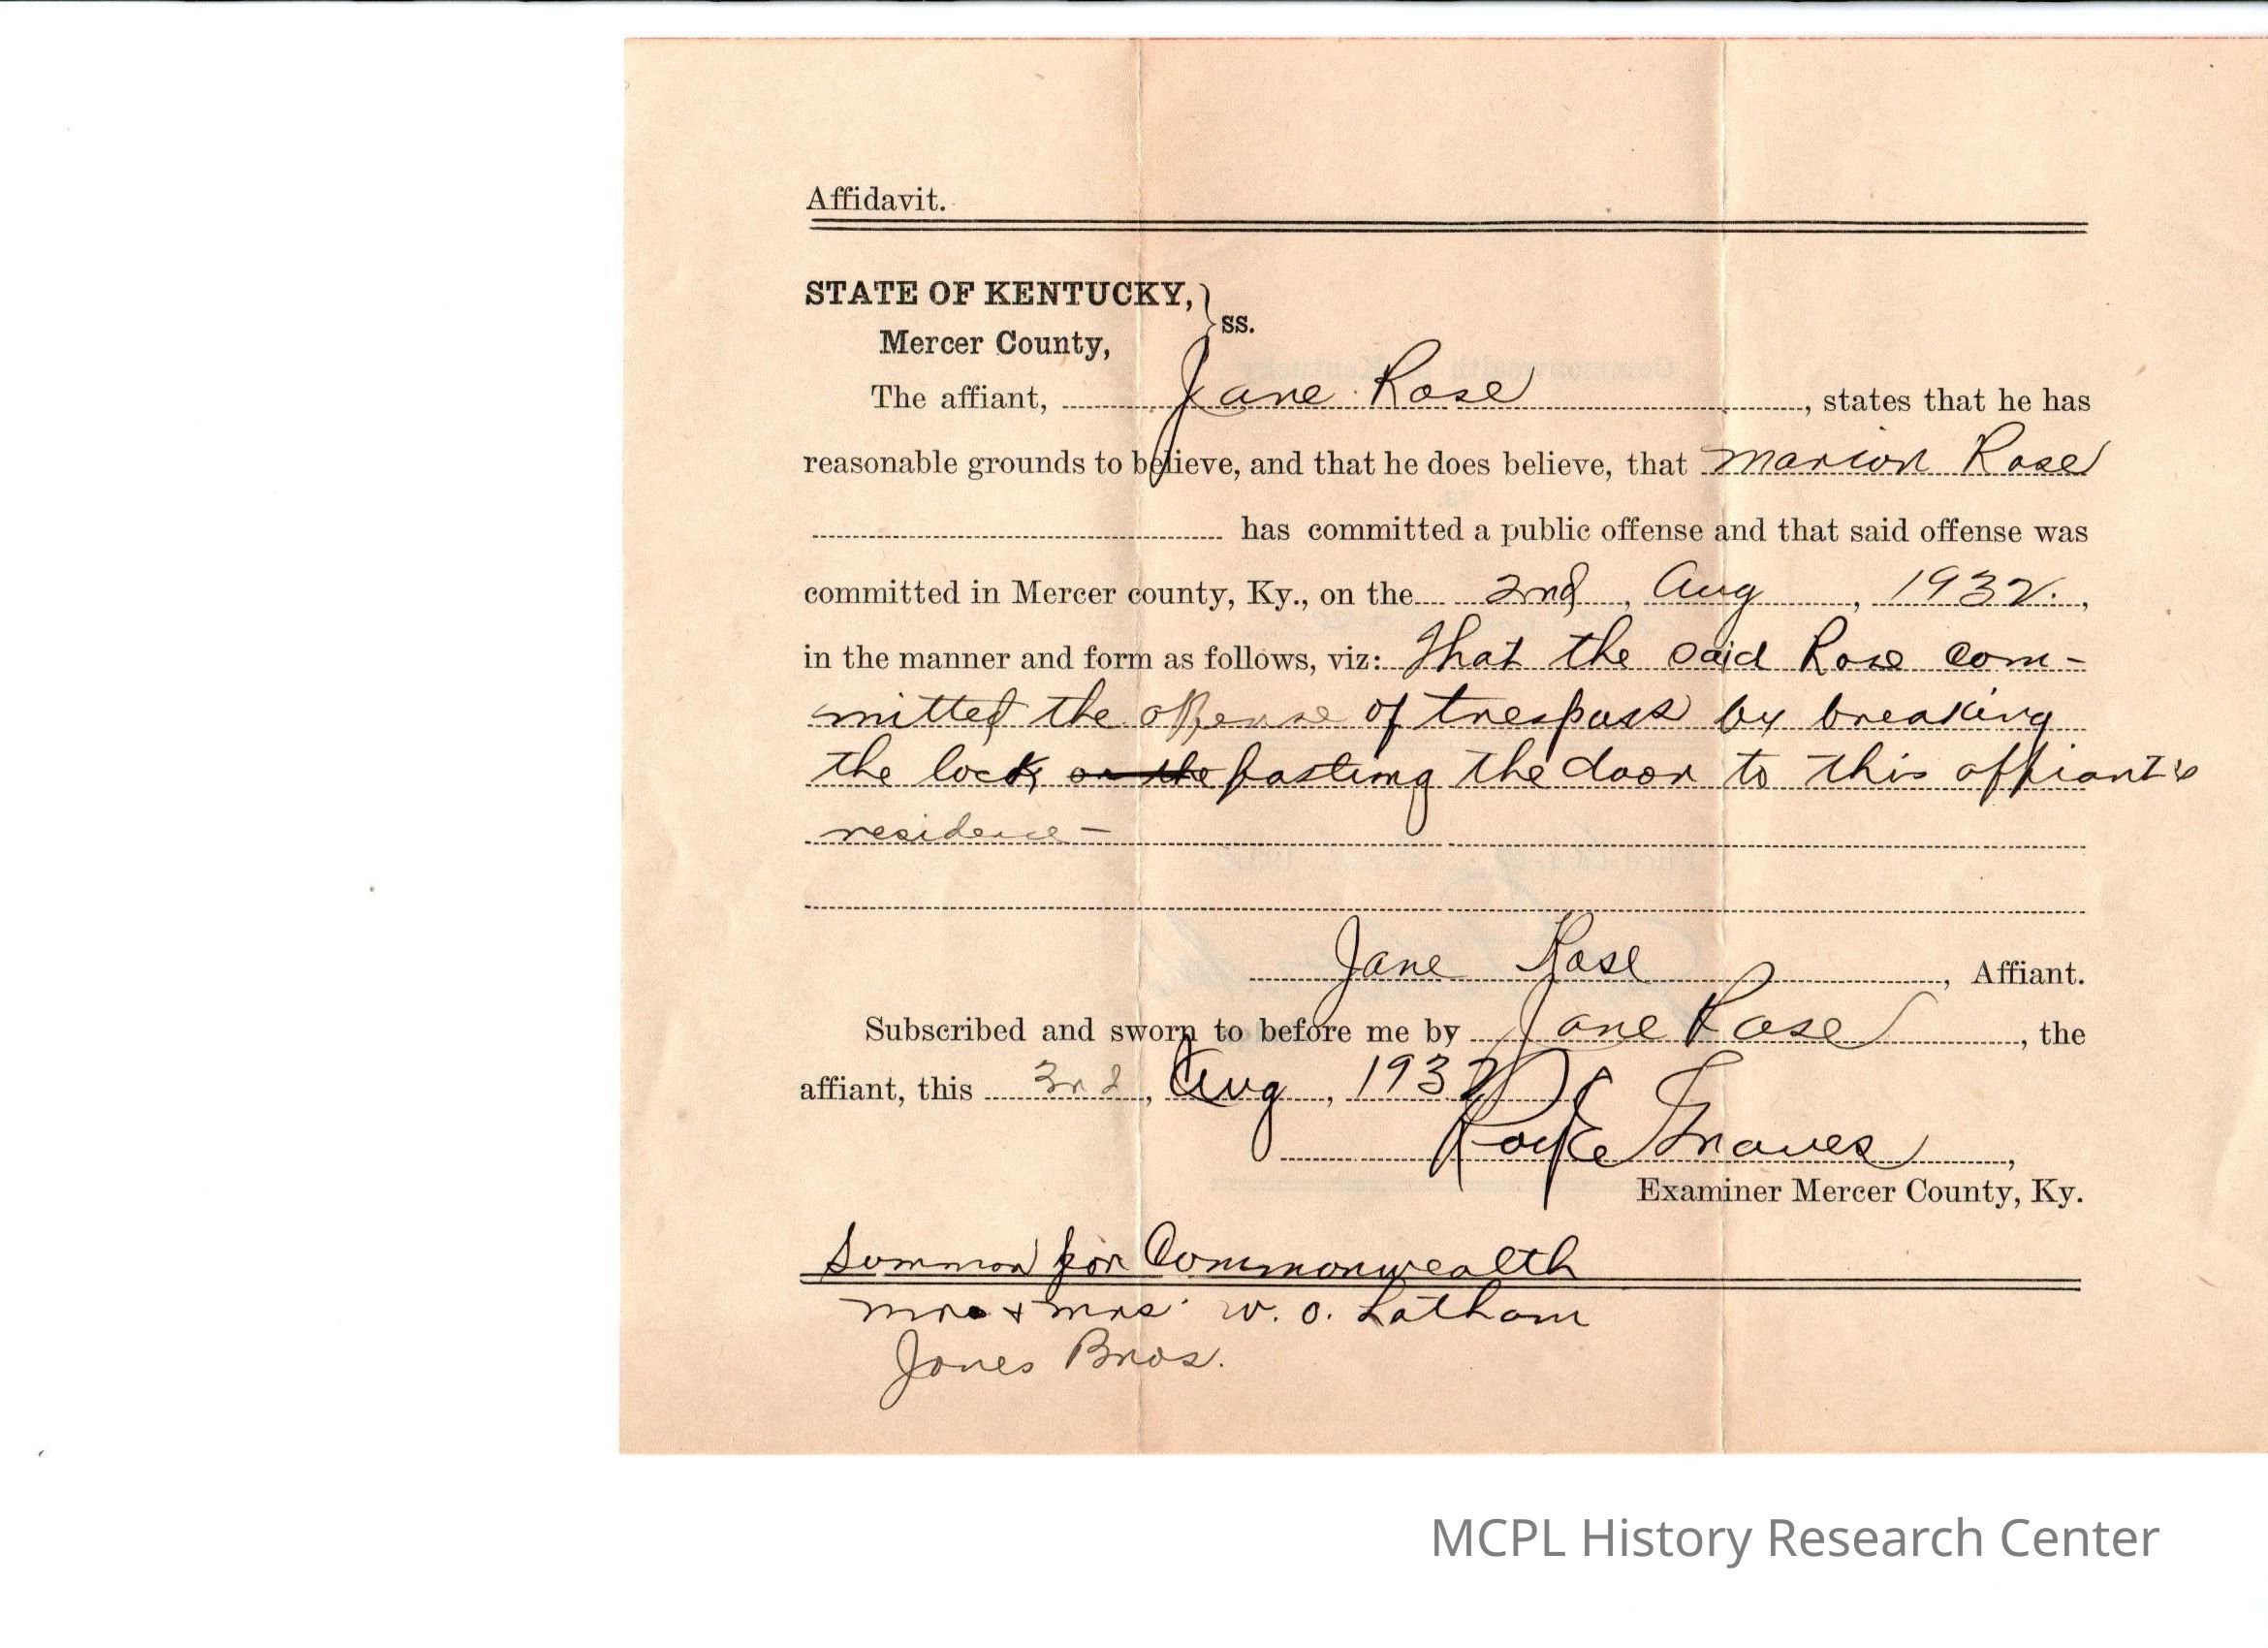 Affidavit.
STATE OF KENTUCKY,
Mercer County, } ss.
The affiant, Jane Rose, states that he has
reasonable grounds to believe, and that he does believe, that Marion Rose
has committed a public offense and that said offense was
committed in Mercer county, Ky., on the 2nd, Aug, 1932.,
in the manner and form as follows, viz: That the said Rose com-
mitted the offense of trespass by breaking
the lock on the fasting the door to this affiant's
residence-
Jane Rose, Affiant.
Subscribed and sworn to before me by Jane Rose, the
affiant, this 3rd, Aug, 1932
Roy E Graves,
Examiner Mercer County, Ky.
Summon for Commonwealth
Mr & Mrs. W. O. Latham
Jones Bros.
MCPL History Research Center